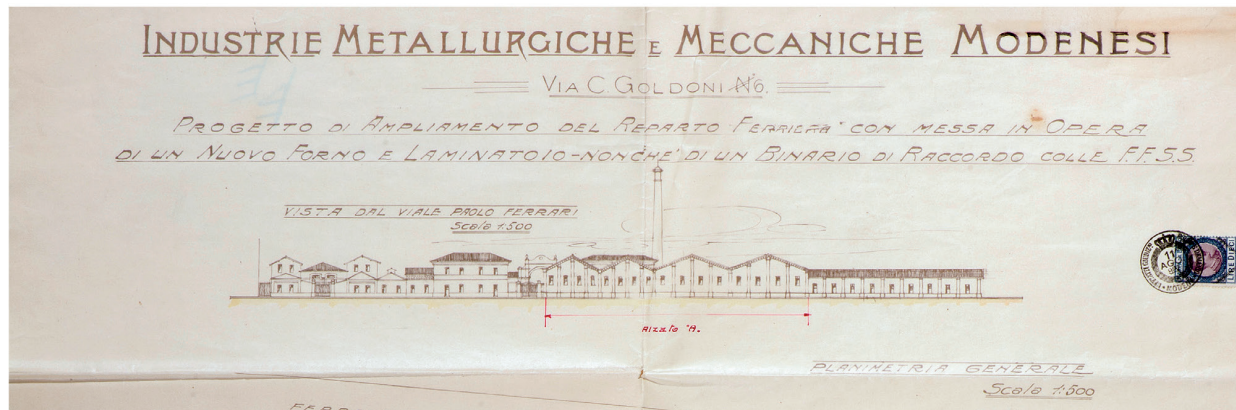 INDUSTRIE METALLURGICHE E MECCANICHE MODENESI
VIA C. GOLDONI N°6.
PROGETTO DI AMPLIAMENTO DEL REPARTO FERRIERA" CON MESSA IN OPERA
DI UN NUOVO FORNO E LAMINATOIO-NONCHE' DI UN BINARIO DI RACCORDO COLLE F.F.S.S.
VISTA DAL VIALE PAOLO FERRARI
Scala 1:500
11
LIRE DIECI
Alzata "A.
PLANIMETRIA GENERALE
Scala 1:500